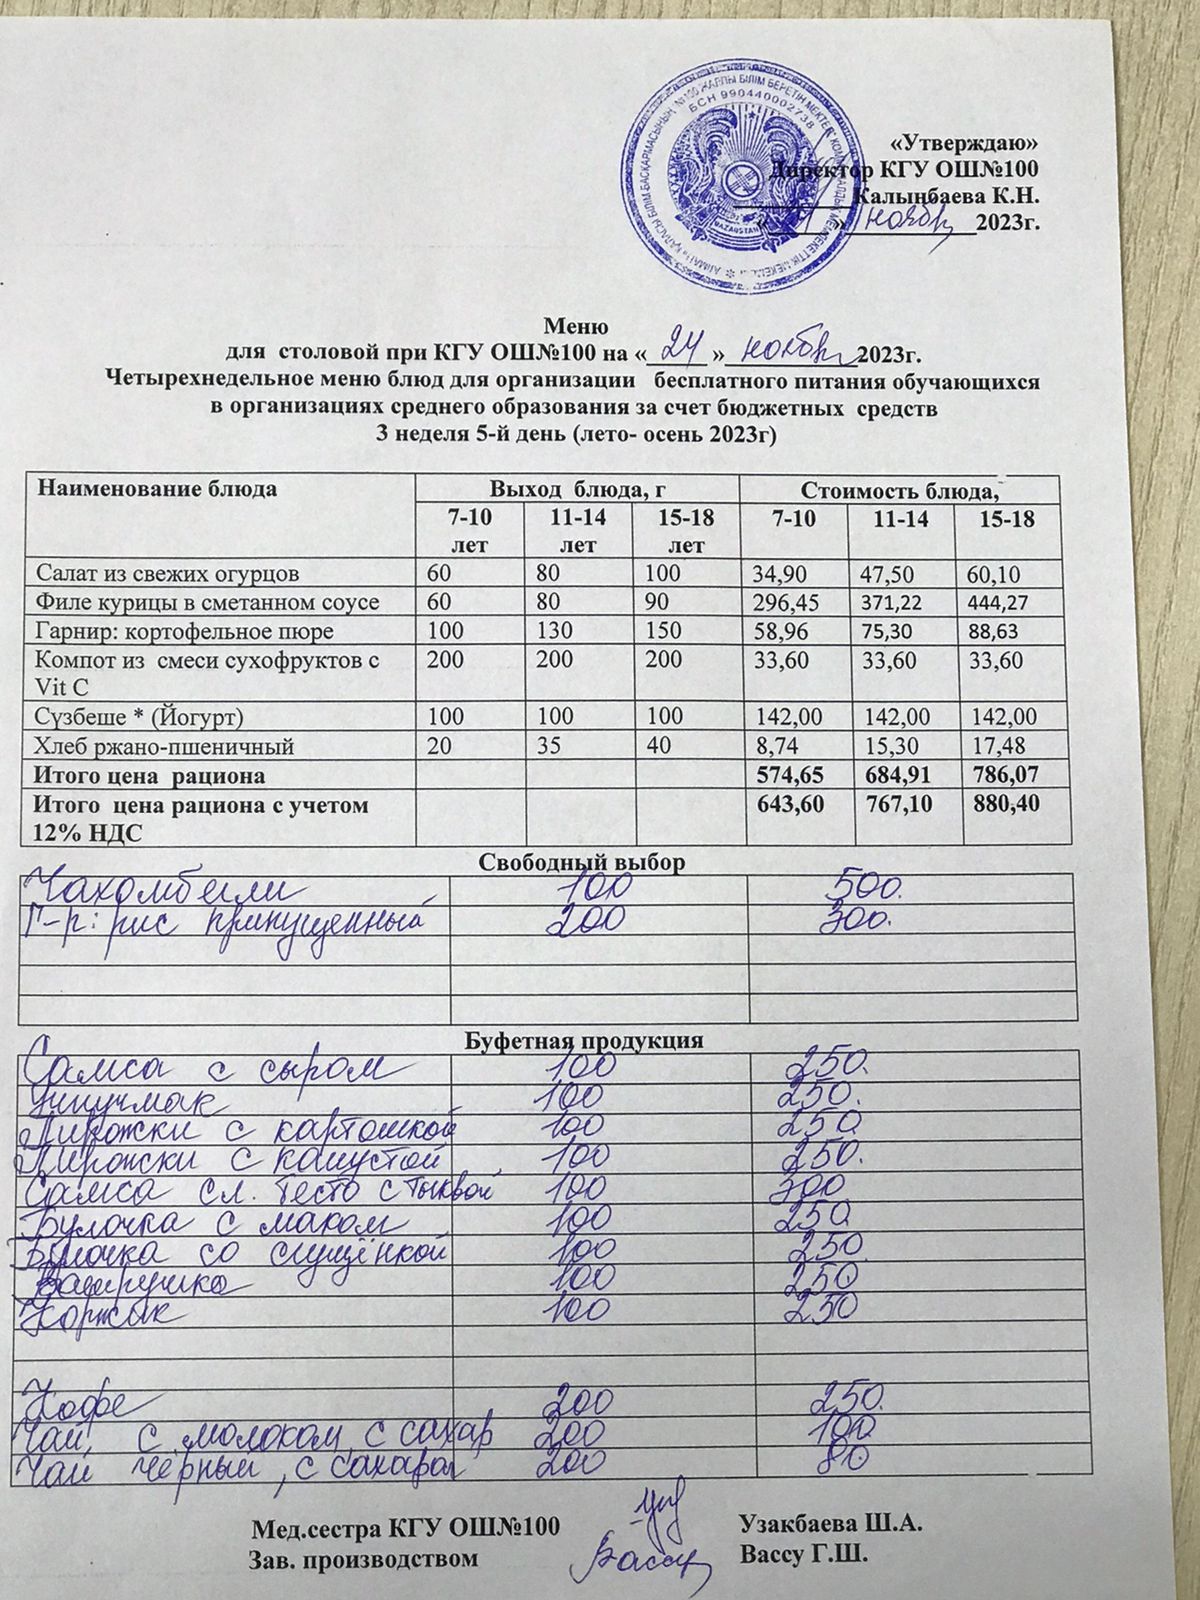 №100 ЖАЛПЫ БІЛІМ БЕРЕТІН МЕКТЕП
БСН 990440002738
QAZAQSTAN
«Утверждаю»
Директор КГУ ОШ№100
Калыңбаева К.Н.
« » ноябрь 2023г.
Меню
для столовой при КГУ ОШ№100 на « 24 » ноябрь 2023г.
Четырехнедельное меню блюд для организации бесплатного питания обучающихся
в организациях среднего образования за счет бюджетных средств
3 неделя 5-й день (лето- осень 2023г)
Наименование блюда Выход блюда, г Стоимость блюда,
7-10 лет 11-14 лет 15-18 лет 7-10 11-14 15-18
Салат из свежих огурцов 60 80 100 34,90 47,50 60,10
Филе курицы в сметанном соусе 60 80 90 296,45 371,22 444,27
Гарнир: кортофельное пюре 100 130 150 58,96 75,30 88,63
Компот из смеси сухофруктов с 200 200 200 33,60 33,60 33,60
Vit C
Сүзбеше * (Йогурт) 100 100 100 142,00 142,00 142,00
Хлеб ржано-пшеничный 20 35 40 8,74 15,30 17,48
Итого цена рациона 574,65 684,91 786,07
Итого цена рациона с учетом 643,60 767,10 880,40
12% НДС
Свободный выбор
Чахомбели 100 500.
Г-р: рис припущенный 200 300.
Буфетная продукция
Самса с сыром 100 250.
Учпучмак 100 250.
Пирожки с картошкой 100 250
Пирожки с капустой 100 250.
Самса сл. тесто с тыквой 100 300
Булочка с маком 100 250
Булочка со сгущёнкой 100 250
Ватрушка 100 250
Коржик 100 250
Кофе 200 250.
Чай, с молоком, с сахар 200 100
Чай чёрный, с сахаром 200 80
Мед.сестра КГУ ОШ№100 Узакбаева Ш.А.
Зав. производством Вассу Вассу Г.Ш.